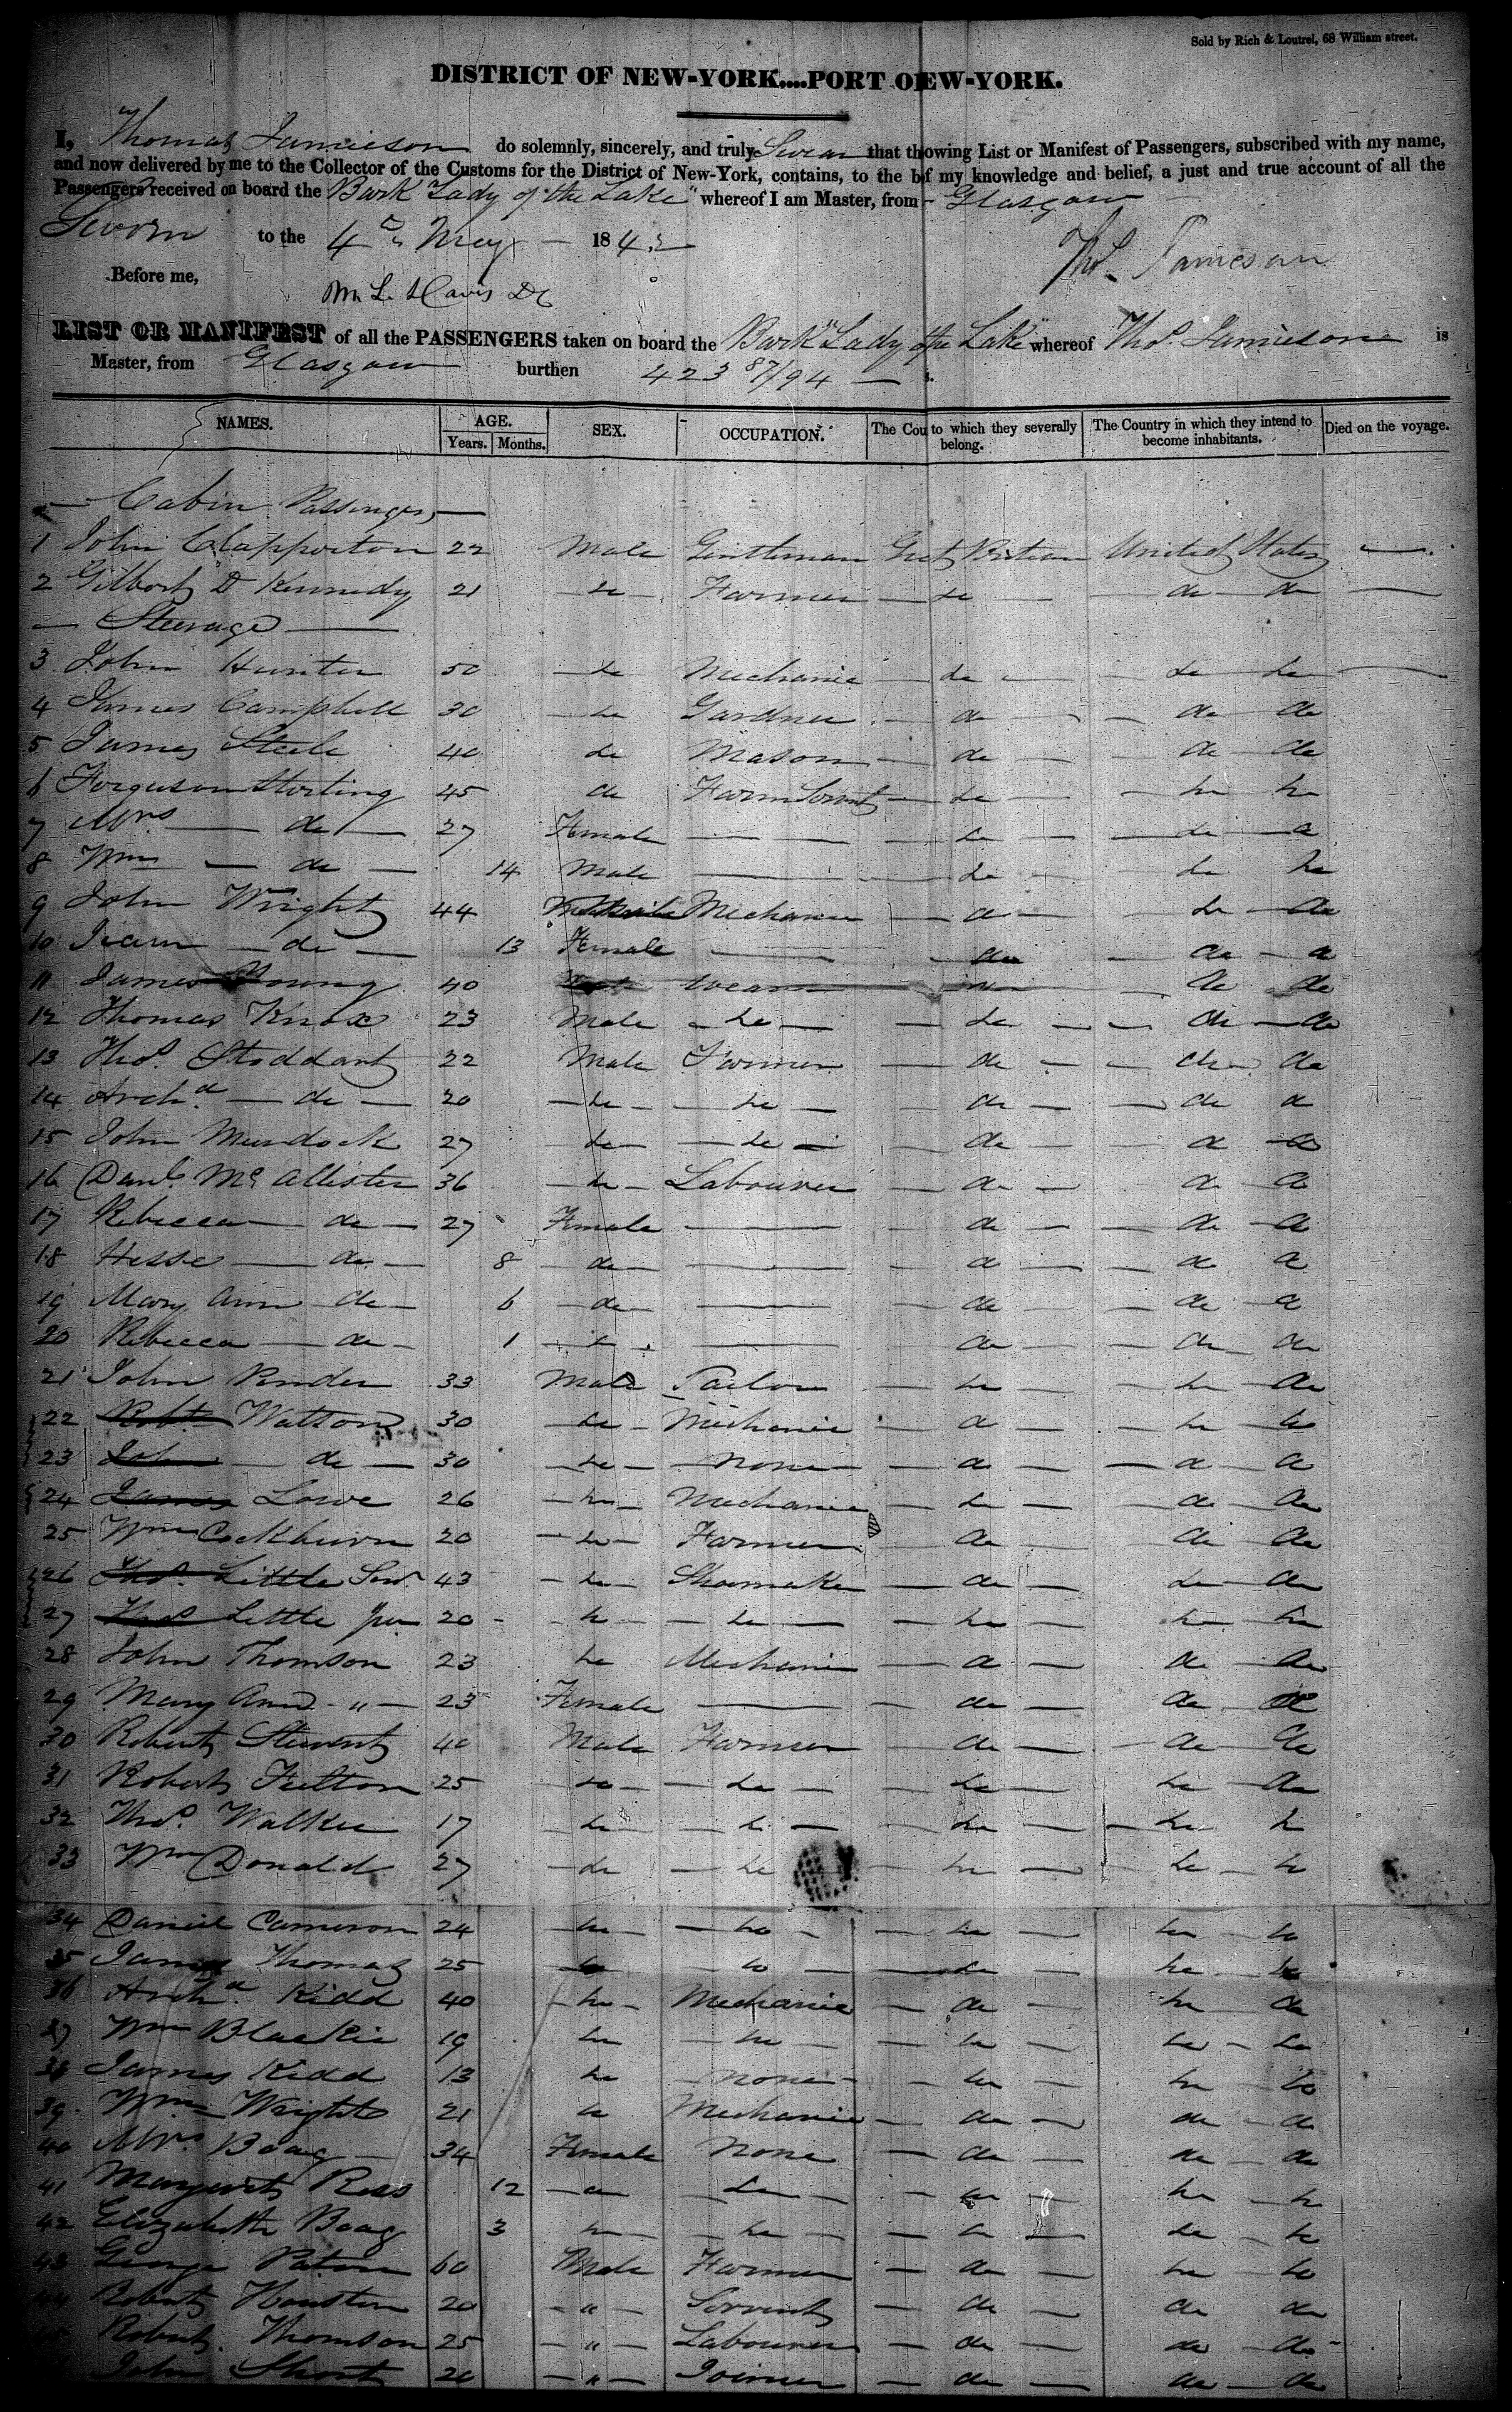 Sold by Rich & Loutrel, 68 William street.
DISTRICT OF NEW-YORK....PORT OEW-YORK.
I, Thomas Jamieson do solemnly, sincerely, and truly Swear that thowing List or Manifest of Passengers, subscribed with my name,
and now delivered by me to the Collector of the Customs for the District of New-York, contains, to the bf my knowledge and belief, a just and true account of all the
Passengers received on board the Bark "Lady of the Lake" whereof I am Master, from Glasgow
Sworn to the 4th May 1842
Thos. Jamieson
Before me,
Wm L. Davis DC
LIST OR MANIFEST of all the PASSENGERS taken on board the Bark "Lady of the Lake" whereof Thos. Jamieson is
Master, from Glasgow burthen 423 87/94 s.
NAMES. AGE. Years. Months. SEX. OCCUPATION. The Cou to which they severally belong. The Country in which they intend to become inhabitants. Died on the voyage.
Cabin Passengers
1 John Clapperton 22 Male Gentleman Great Britain United States
2 Gilbert D Kennedy 21 do Farmer do do do
Steerage
3 John Hunter 50 do Mechanic do do do
4 James Campbell 30 do Gardner do do do
5 James Steele 40 do Mason do do do
6 Ferguson Storling 45 do Farm Servt do do do
7 Mrs do 27 Female do do do
8 Wm do 14 Male do do do
9 John Wright 44 Mechanic do do do
10 Jean do 13 Female do do do
11 James Young 40 do do do
12 Thomas Knox 23 Male do do do do
13 Thos. Stoddart 22 Male Farmer do do do
14 Archd. do 20 do do do do do
15 John Murdock 27 do do do do do
16 Danl. McAllister 36 do Labourer do do do
17 Rebecca do 27 Female do do do
18 Hesse do 8 do do do do
19 Mary Ann do 6 do do do do
20 Rebecca do 1 do do do do
21 John Pender 33 Male Tailor do do do
22 Robt. Watson 30 do Mechanic do do do
23 John do 30 do None do do do
24 James Lowe 26 do Mechanic do do do
25 Wm Cockburn 20 do Farmer do do do
26 Thos. Little Senr. 43 do Shoemaker do do do
27 Thos. Little Jun 20 do do do do do
28 John Thomson 23 do Mechanic do do do
29 Mary Ann " 23 Female do do do
30 Robert Stewart 40 Male Farmer do do do
31 Robert Fulton 25 do do do do do
32 Thos. Walker 17 do do do do do
33 Wm Donald 27 do do do do do
34 Daniel Cameron 24 do do do do do
35 James Thomas 25 do do do do do
36 Archd. Kidd 40 do Mechanic do do do
37 Wm Blackie 19 do do do do do
38 James Kidd 13 do None do do do
39 Wm Wright 21 do Mechanic do do do
40 Mrs. Boag 34 Female None do do do
41 Margaret Ross 12 do do do do do
42 Elizabeth Boag 3 do do do do do
43 George Paton 60 Male Farmer do do do
44 Robert Houston 20 " Servant do do do
Robert Thomson 25 " Labourer do do do
John Short 20 " Joiner do do do